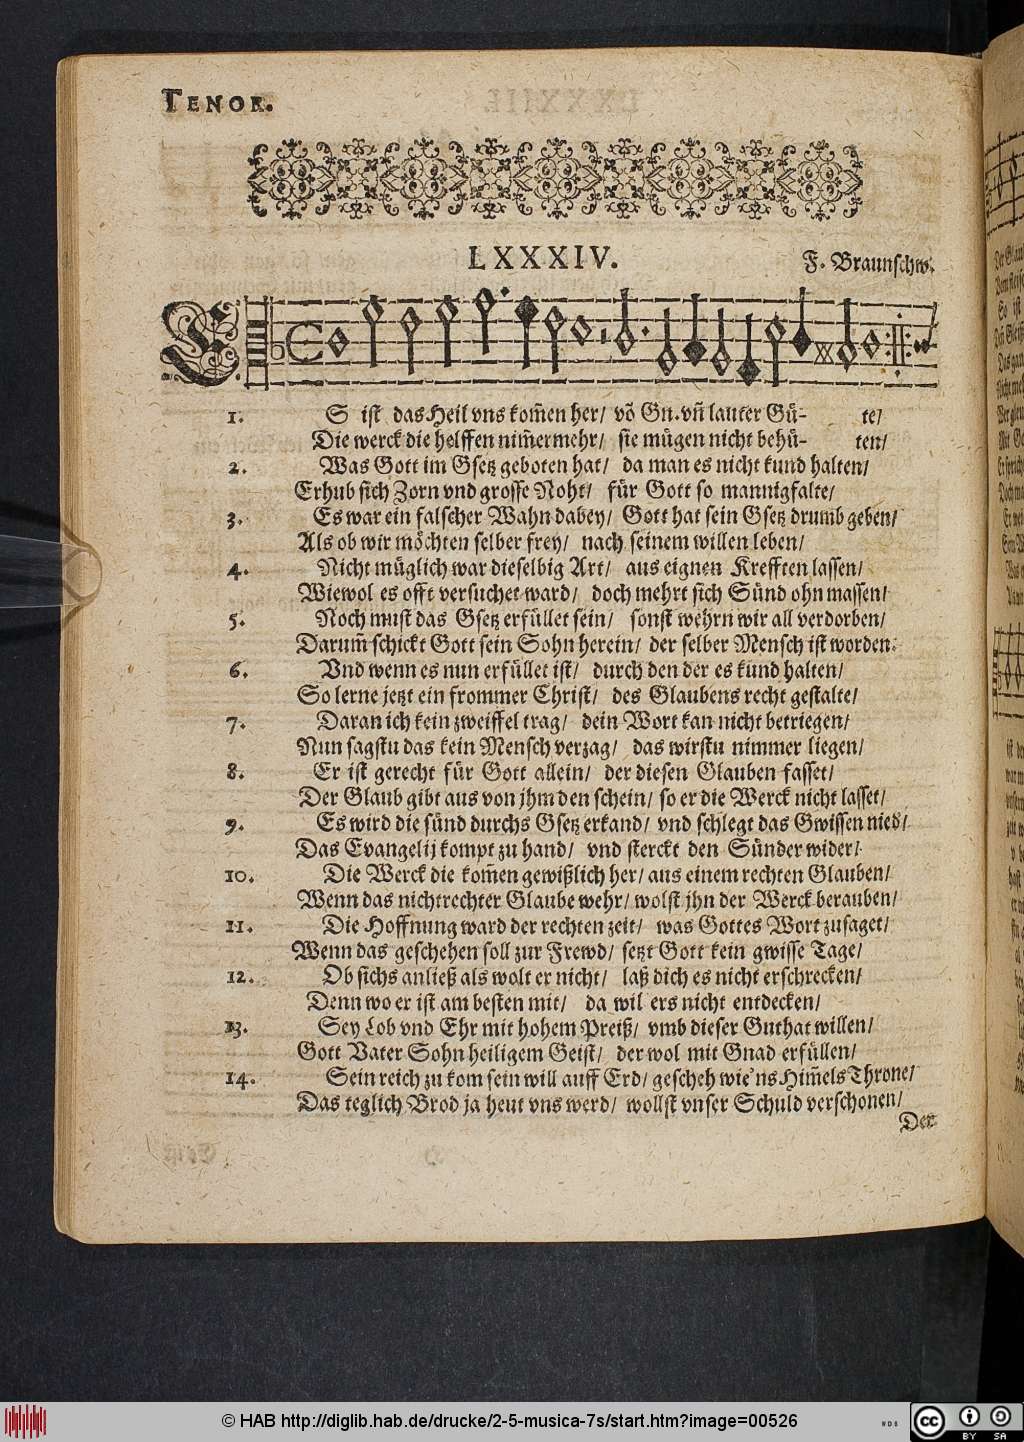 TENOR.
LXXXIV.
F. Braunschw.
E
1. S ist das Heil vns kom̃en her/ võ Gn. vñ lauter Gü- te/
Die werck die helffen nim̃ermehr/ sie mügen nicht behü- ten/
2. Was Gott im Gsetz geboten hat/ da man es nicht kund halten/
Erhub sich Zorn vnd grosse Noht/ für Gott so mannigfalte/
3. Es war ein falscher Wahn dabey/ Gott hat sein Gsetz drumb geben/
Als ob wir möchten selber frey/ nach seinem willen leben/
4. Nicht müglich war dieselbig Art/ aus eignen Krefften lassen/
Wiewol es offt versuchet ward/ doch mehrt sich Sünd ohn massen/
5. Noch must das Gsetz erfüllet sein/ sonst wehrn wir all verdorben/
Darum̃ schickt Gott sein Sohn herein/ der selber Mensch ist worden.
6. Vnd wenn es nun erfüllet ist/ durch den der es kund halten/
So lerne jetzt ein frommer Christ/ des Glaubens recht gestalte/
7. Daran ich kein zweiffel trag/ dein Wort kan nicht betriegen/
Nun sagstu das kein Mensch verzag/ das wirstu nimmer liegen/
8. Er ist gerecht für Gott allein/ der diesen Glauben fasset/
Der Glaub gibt aus von jhm den schein/ so er die Werck nicht lasset/
9. Es wird die sünd durchs Gsetz erkand/ vnd schlegt das Gwissen nied/
Das Evangelij kompt zu hand/ vnd sterckt den Sünder wider/
10. Die Werck die kom̃en gewißlich her/ aus einem rechten Glauben/
Wenn das nicht rechter Glaube wehr/ wolst jhn der Werck berauben/
11. Die Hoffnung ward der rechten zeit/ was Gottes Wort zusaget/
Wenn das geschehen soll zur Frewd/ setzt Gott kein gwisse Tage/
12. Ob sichs anließ als wolt er nicht/ laß dich es nicht erschrecken/
Denn wo er ist am besten mit/ da wil ers nicht entdecken/
13. Sey Lob vnd Ehr mit hohem Preiß/ vmb dieser Guthat willen/
Gott Vater Sohn heiligem Geist/ der wol mit Gnad erfüllen/
14. Sein reich zu kom sein will auff Erd/ gescheh wie'ns Him̃els Throne/
Das teglich Brod ja heut vns werd/ wollst vnser Schuld verschonen/
Der
© HAB http://diglib.hab.de/drucke/2-5-musica-7s/start.htm?image=00526
cc BY SA